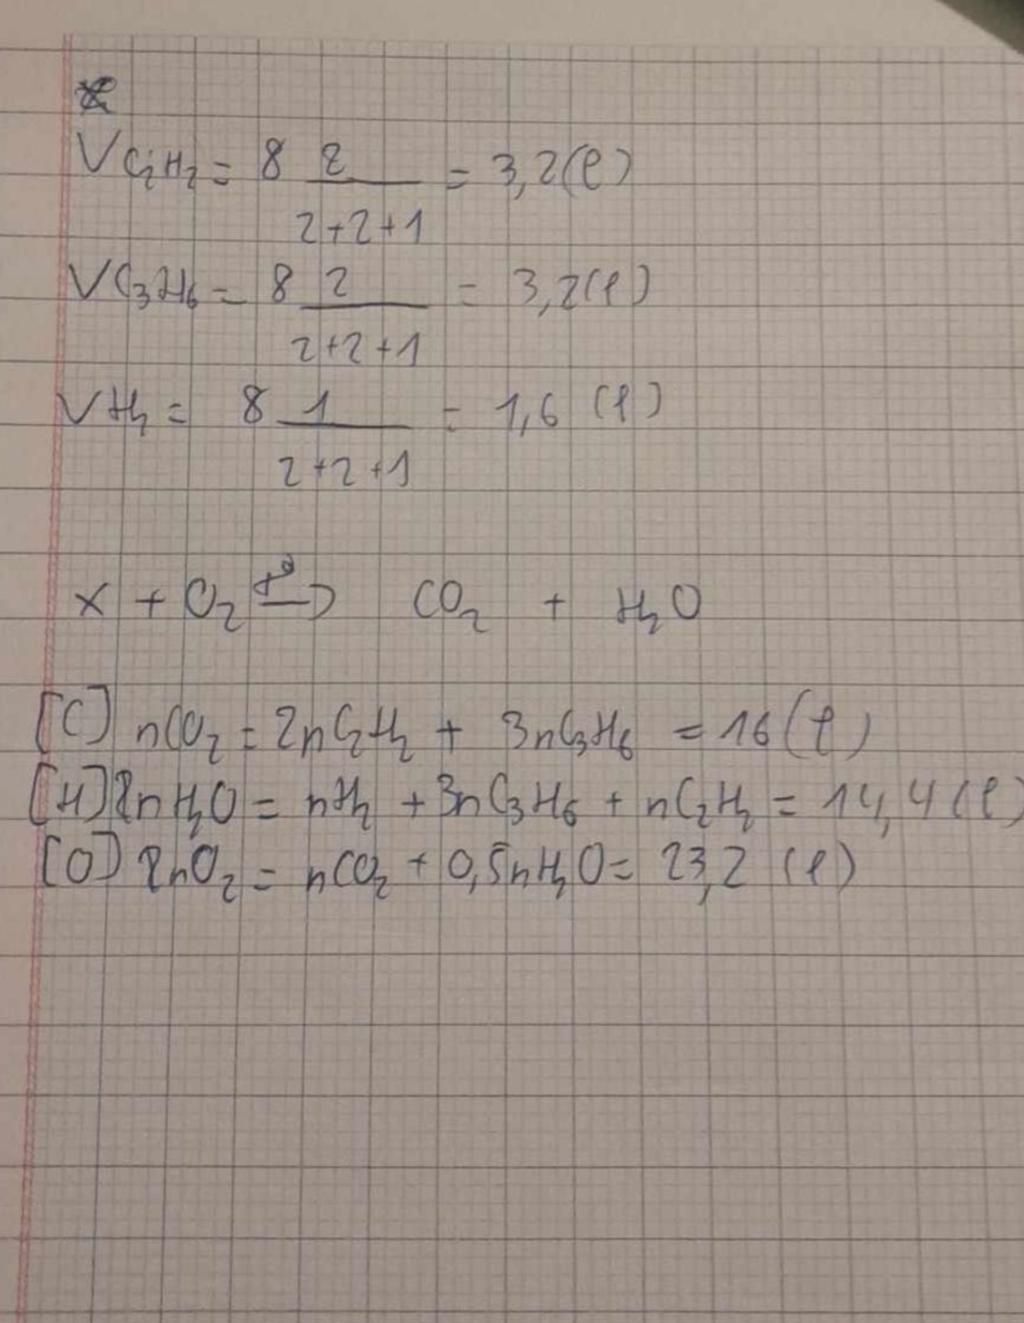 VC₂H₂ = 8 2/(2+2+1) = 3,2(l)
VC₃H₆ = 8 2/(2+2+1) = 3,2(l)
VH₂ = 8 1/(2+2+1) = 1,6 (l)
X + O₂ t⁰→ CO₂ + H₂O
[C] nCO₂ = 2nC₂H₂ + 3nC₃H₆ = 16(l)
[H] 2nH₂O = nH₂ + 3nC₃H₆ + nC₂H₂ = 14,4(l)
[O] 2nO₂ = nCO₂ + 0,5nH₂O = 23,2 (l)